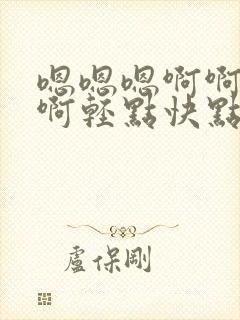 嗯嗯嗯啊啊
啊轻點快點
盧保剛